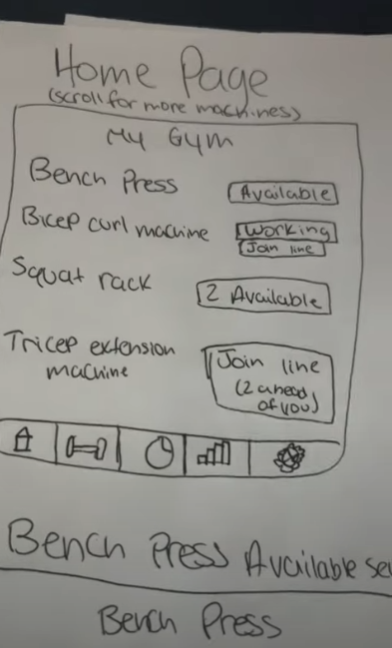 Home Page
(scroll for more machines)
My Gym
Bench Press
Available
Bicep curl machine
Working
Join line
Squat rack
2 Available
Tricep extension
machine
Join line
(2 ahead
of you)
Bench Press Available
Bench Press